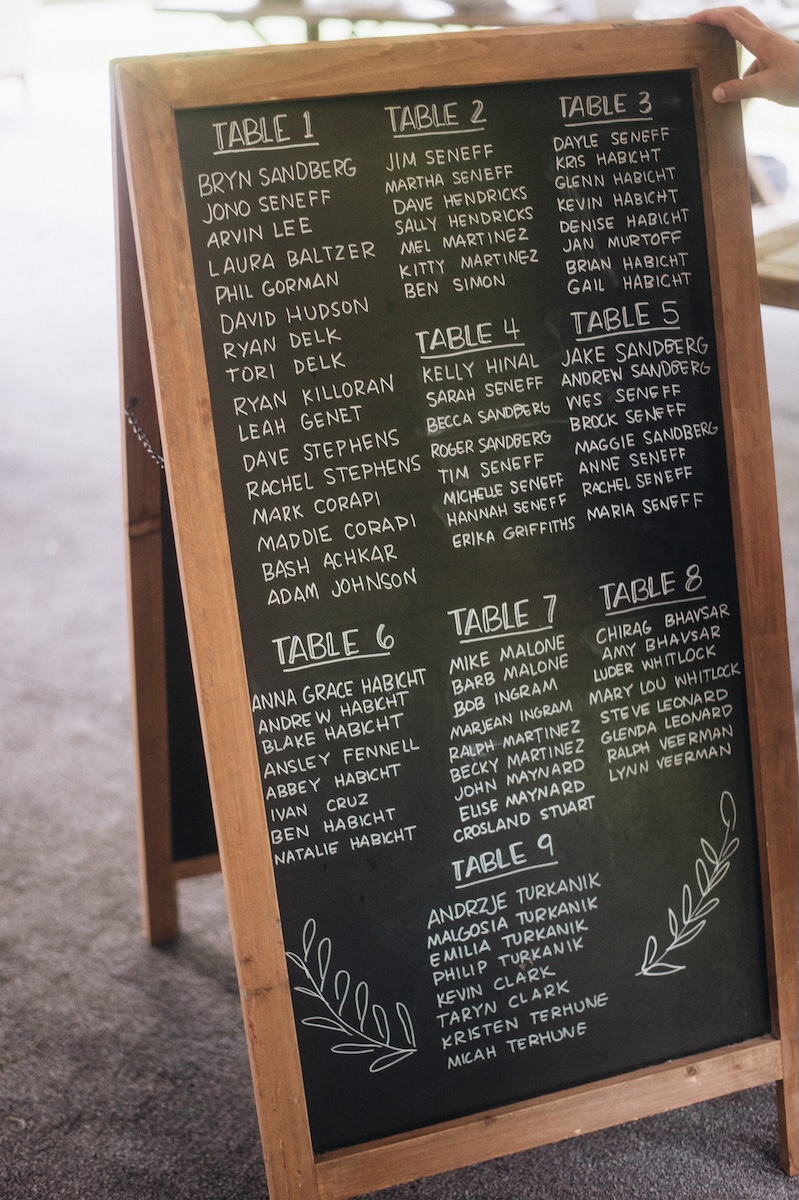 TABLE 1
BRYN SANDBERG
JONO SENEFF
ARVIN LEE
LAURA BALTZER
PHIL GORMAN
DAVID HUDSON
RYAN DELK
TORI DELK
RYAN KILLORAN
LEAH GENET
DAVE STEPHENS
RACHEL STEPHENS
MARK CORAPI
MADDIE CORAPI
BASH ACHKAR
ADAM JOHNSON
TABLE 2
JIM SENEFF
MARTHA SENEFF
DAVE HENDRICKS
SALLY HENDRICKS
MEL MARTINEZ
KITTY MARTINEZ
BEN SIMON
TABLE 3
DAYLE SENEFF
KRIS HABICHT
GLENN HABICHT
KEVIN HABICHT
DENISE HABICHT
JAN MURTOFF
BRIAN HABICHT
GAIL HABICHT
TABLE 4
KELLY HINAL
SARAH SENEFF
BECCA SANDBERG
ROGER SANDBERG
TIM SENEFF
MICHELLE SENEFF
HANNAH SENEFF
ERIKA GRIFFITHS
TABLE 5
JAKE SANDBERG
ANDREW SANDBERG
WES SENEFF
BROCK SENEFF
MAGGIE SANDBERG
ANNE SENEFF
RACHEL SENEFF
MARIA SENEFF
TABLE 6
ANNA GRACE HABICHT
ANDREW HABICHT
BLAKE HABICHT
ANSLEY FENNELL
ABBEY HABICHT
IVAN CRUZ
BEN HABICHT
NATALIE HABICHT
TABLE 7
MIKE MALONE
BARB MALONE
BOB INGRAM
MARJEAN INGRAM
RALPH MARTINEZ
BECKY MARTINEZ
JOHN MAYNARD
ELISE MAYNARD
CROSLAND STUART
TABLE 8
CHIRAG BHAVSAR
AMY BHAVSAR
LUDER WHITLOCK
MARY LOU WHITLOCK
STEVE LEONARD
GLENDA LEONARD
RALPH VEERMAN
LYNN VEERMAN
TABLE 9
ANDRZJE TURKANIK
MALGOSIA TURKANIK
EMILIA TURKANIK
PHILIP TURKANIK
KEVIN CLARK
TARYN CLARK
KRISTEN TERHUNE
MICAH TERHUNE